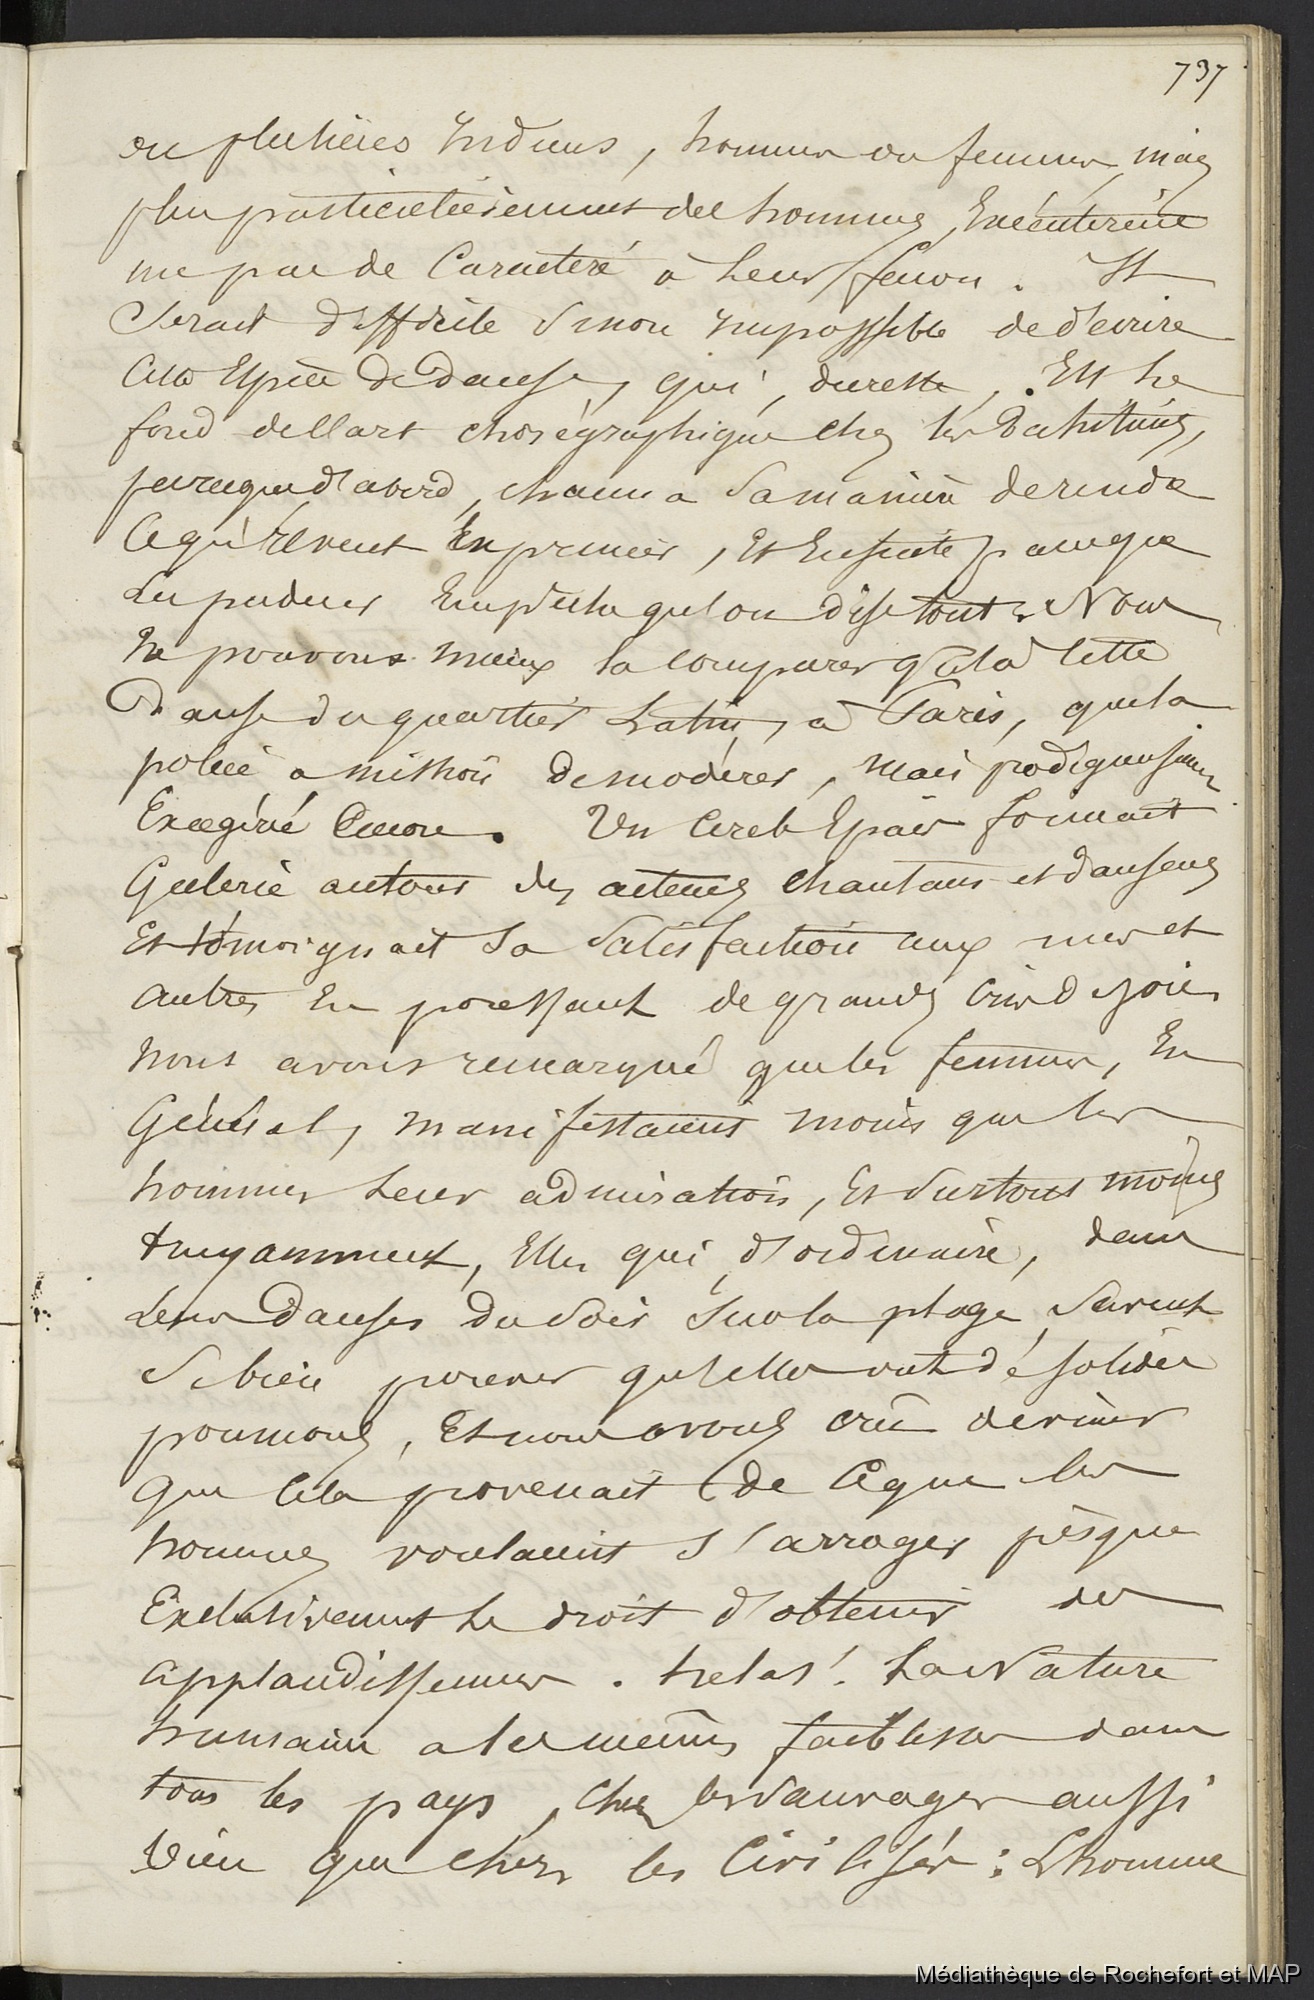 737
ou plusieurs Indiens, hommes ou femmes, mais
plus particulièrement des hommes, Exécutèrent
un pas de Caractère à leur façon. Il
Serait difficile Sinon impossible de décrire
Cette Espèce de danse, qui, dureste, Est le
fond del'art chorégraphique chez les Tahitiens,
parceque d'abord, chacun a Sa manière de rendre
Ce qu'il veut Exprimer, Et Ensuite parceque
La pudeur Empêche qu'on dise tout. Nous
Ne pouvons mieux la comparer qu'à cette
Danse du quartier Latin, à Paris, que la
police a mission de modérer, mais prodigieusement
Exagéré Encore. Un Cercle Epais formait
Galerie autour des acteurs chantans et danseurs
Et témoignait Sa Satisfaction aux uns et
autres En poussant de grands Cris de joie.
Nous avons remarqué que les femmes, En
Général, manifestaient moins que les
hommes leur admiration, Et Surtout moins
bruyamment, Elles qui d'ordinaire, dans
Leurs Danses du Soir Sur la plage, Savent
Si bien prouver qu'elles ont de solides
poumons, Et nous avons cru deviner
Que Cela provenait de Ce que les
hommes voulaient s'arroger presque
Exclusivement le droit d'obtenir des
applaudissemens. hélas! La Nature
humaine a les mêmes faiblesses dans
tous les pays, Chez les Sauvages aussi
bien que chez les Civilisés: L'homme
Médiathèque de Rochefort et MAP